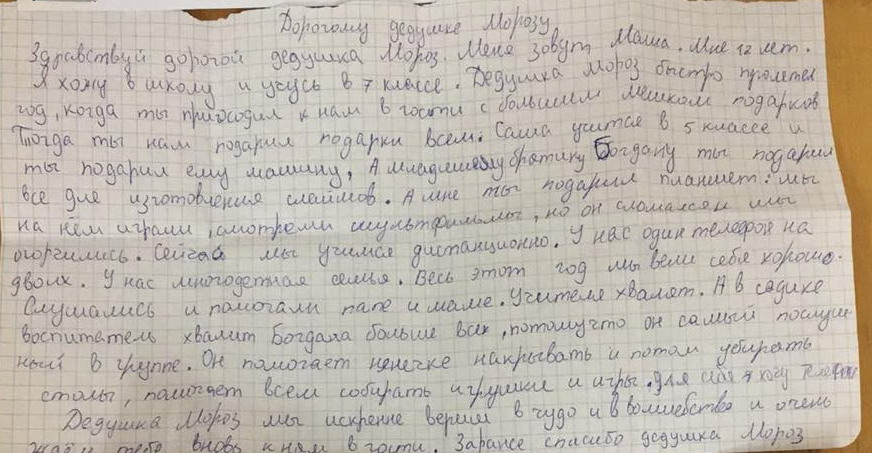 Дорогому дедушке Морозу
Здравствуй дорогой дедушка Мороз. Меня зовут Маша. Мне 12 лет.
Я хожу в школу и учусь в 7 классе. Дедушка Мороз быстро пролетел
год, когда ты приходил к нам в гости с большим мешком подарков
Тогда ты нам подарил подарки всем. Саша учится в 5 классе и
ты подарил ему машину, А младшему братику Богдану ты подарил
все для изготовления слаймов. А мне ты подарил планшет: мы
на нём играли, смотрели мультфильмы, но он сломался и мы
огорчились. Сейчас мы учимся дистанционно. У нас один телефон на
двоих. У нас многодетная семья. Весь этот год мы вели себя хорошо.
Слушались и помогали папе и маме. Учителя хвалят. А в садике
воспитатель хвалит Богдана больше всех, потому что он самый послуш
ный в группе. Он помогает нянечке накрывать и потом убирать
столы, помогает всем собирать игрушки и игры. Для себя я хочу телефон
Дедушка Мороз мы искренне верим в чудо и в волшебство и очень
ждём тебя вновь к нам в гости. Заранее спасибо дедушка Мороз